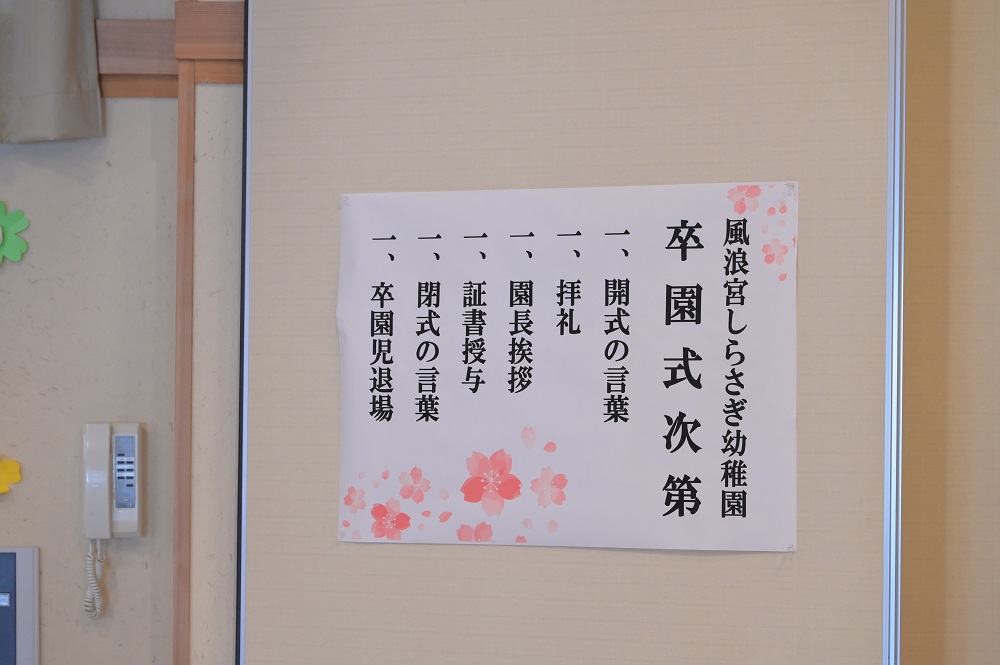 風浪宮しらさぎ幼稚園
卒園式次第
一、開式の言葉
一、拝礼
一、園長挨拶
一、証書授与
一、閉式の言葉
一、卒園児退場